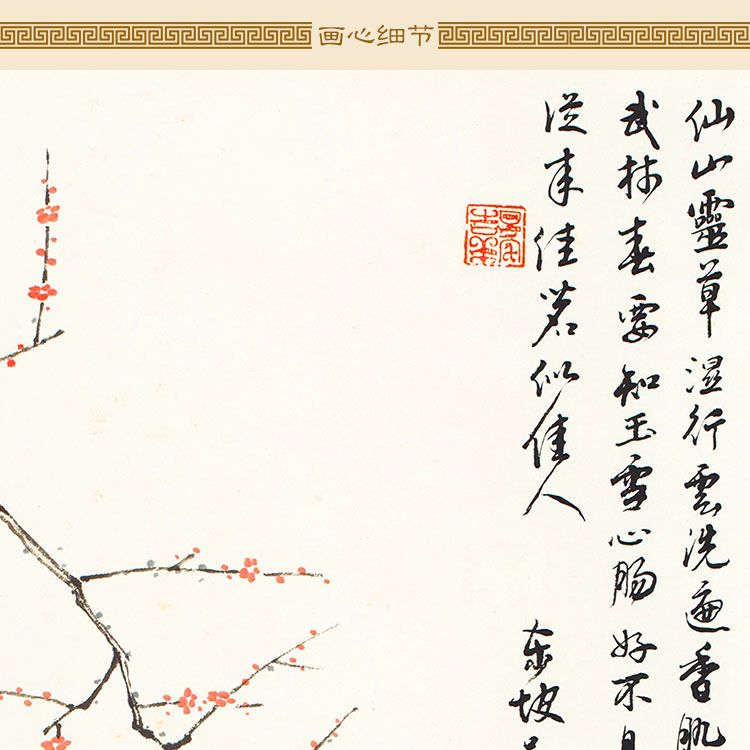 画心细节
仙山靈草湿行雲洗遍香肌
武林春要知玉雪心肠好不
從来佳茗似佳人
東坡